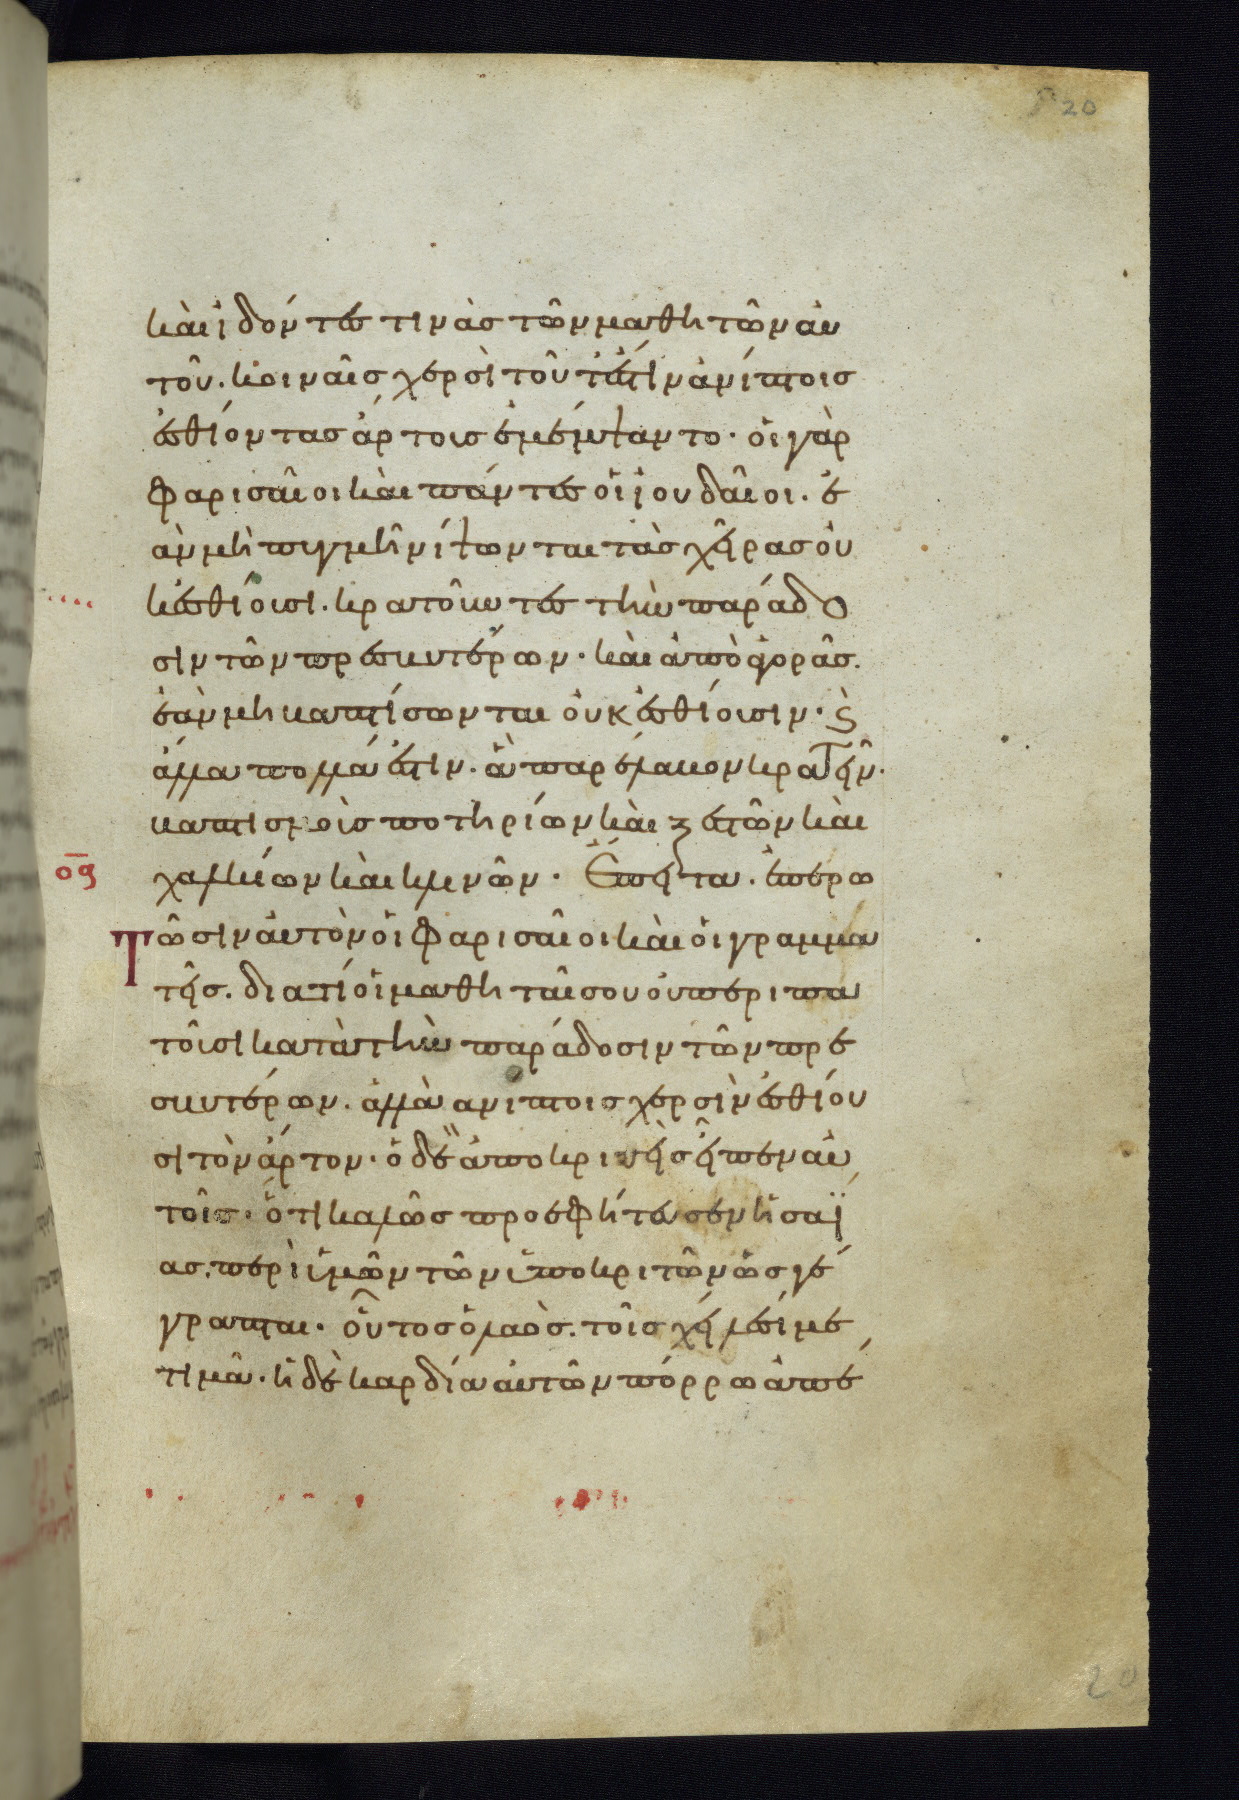 20
καὶ ἰδόντες τινὰς τῶν μαθητῶν αὐ
τοῦ. κοιναῖς χερσὶ τοῦτέστιν ἀνίπτοις
ἐσθίοντας ἄρτοις ἐμέμψαντο· οἱ γὰρ
φαρισαῖοι καὶ πάντες οἱ ἰουδαῖοι. ἐ
ὰν μὴ πυγμῇ νίψωνται τὰς χεῖρας οὐ
κ ἐσθίουσι. κρατοῦντες τὴν παράδο
σιν τῶν πρεσβυτέρων· καὶ ἀπὸ ἀγορᾶς.
ἐὰν μὴ βαπτίσωνται οὐκ ἐσθίουσιν· ϛ̀
ἄλλα πολλά ἐστιν. ἃ παρέλαβον κρατεῖν·
βαπτισμοὺς ποτηρίων καὶ ξεστῶν καὶ
οθ
χαλκίων καὶ κλινῶν· Ἔπειτα. ἐπερω
τῶσιν αὐτὸν οἱ φαρισαῖοι καὶ οἱ γραμμα
τεῖς. διατί οἱ μαθηταῖ σου οὐ περιπα
τοῦσι κατὰ τὴν παράδοσιν τῶν πρε
σβυτέρων. ἀλλὰ ανίπτοις χερσὶν ἐσθίου
σι τὸν ἄρτον· ὁ δὲ ἀποκριθεὶς εἶπεν αὐ
τοῖς· ὅτι καλῶς προεφήτευσεν ἡσαΐ
ας. περὶ ὑμῶν τῶν ὑποκριτῶν ὡς γέ
γραπται· οὗτος ὁ λαὸς. τοῖς χείλεσί με
τιμᾶ. ἡ δὲ καρδία αὐτῶν πόρρω ἀπέ
20